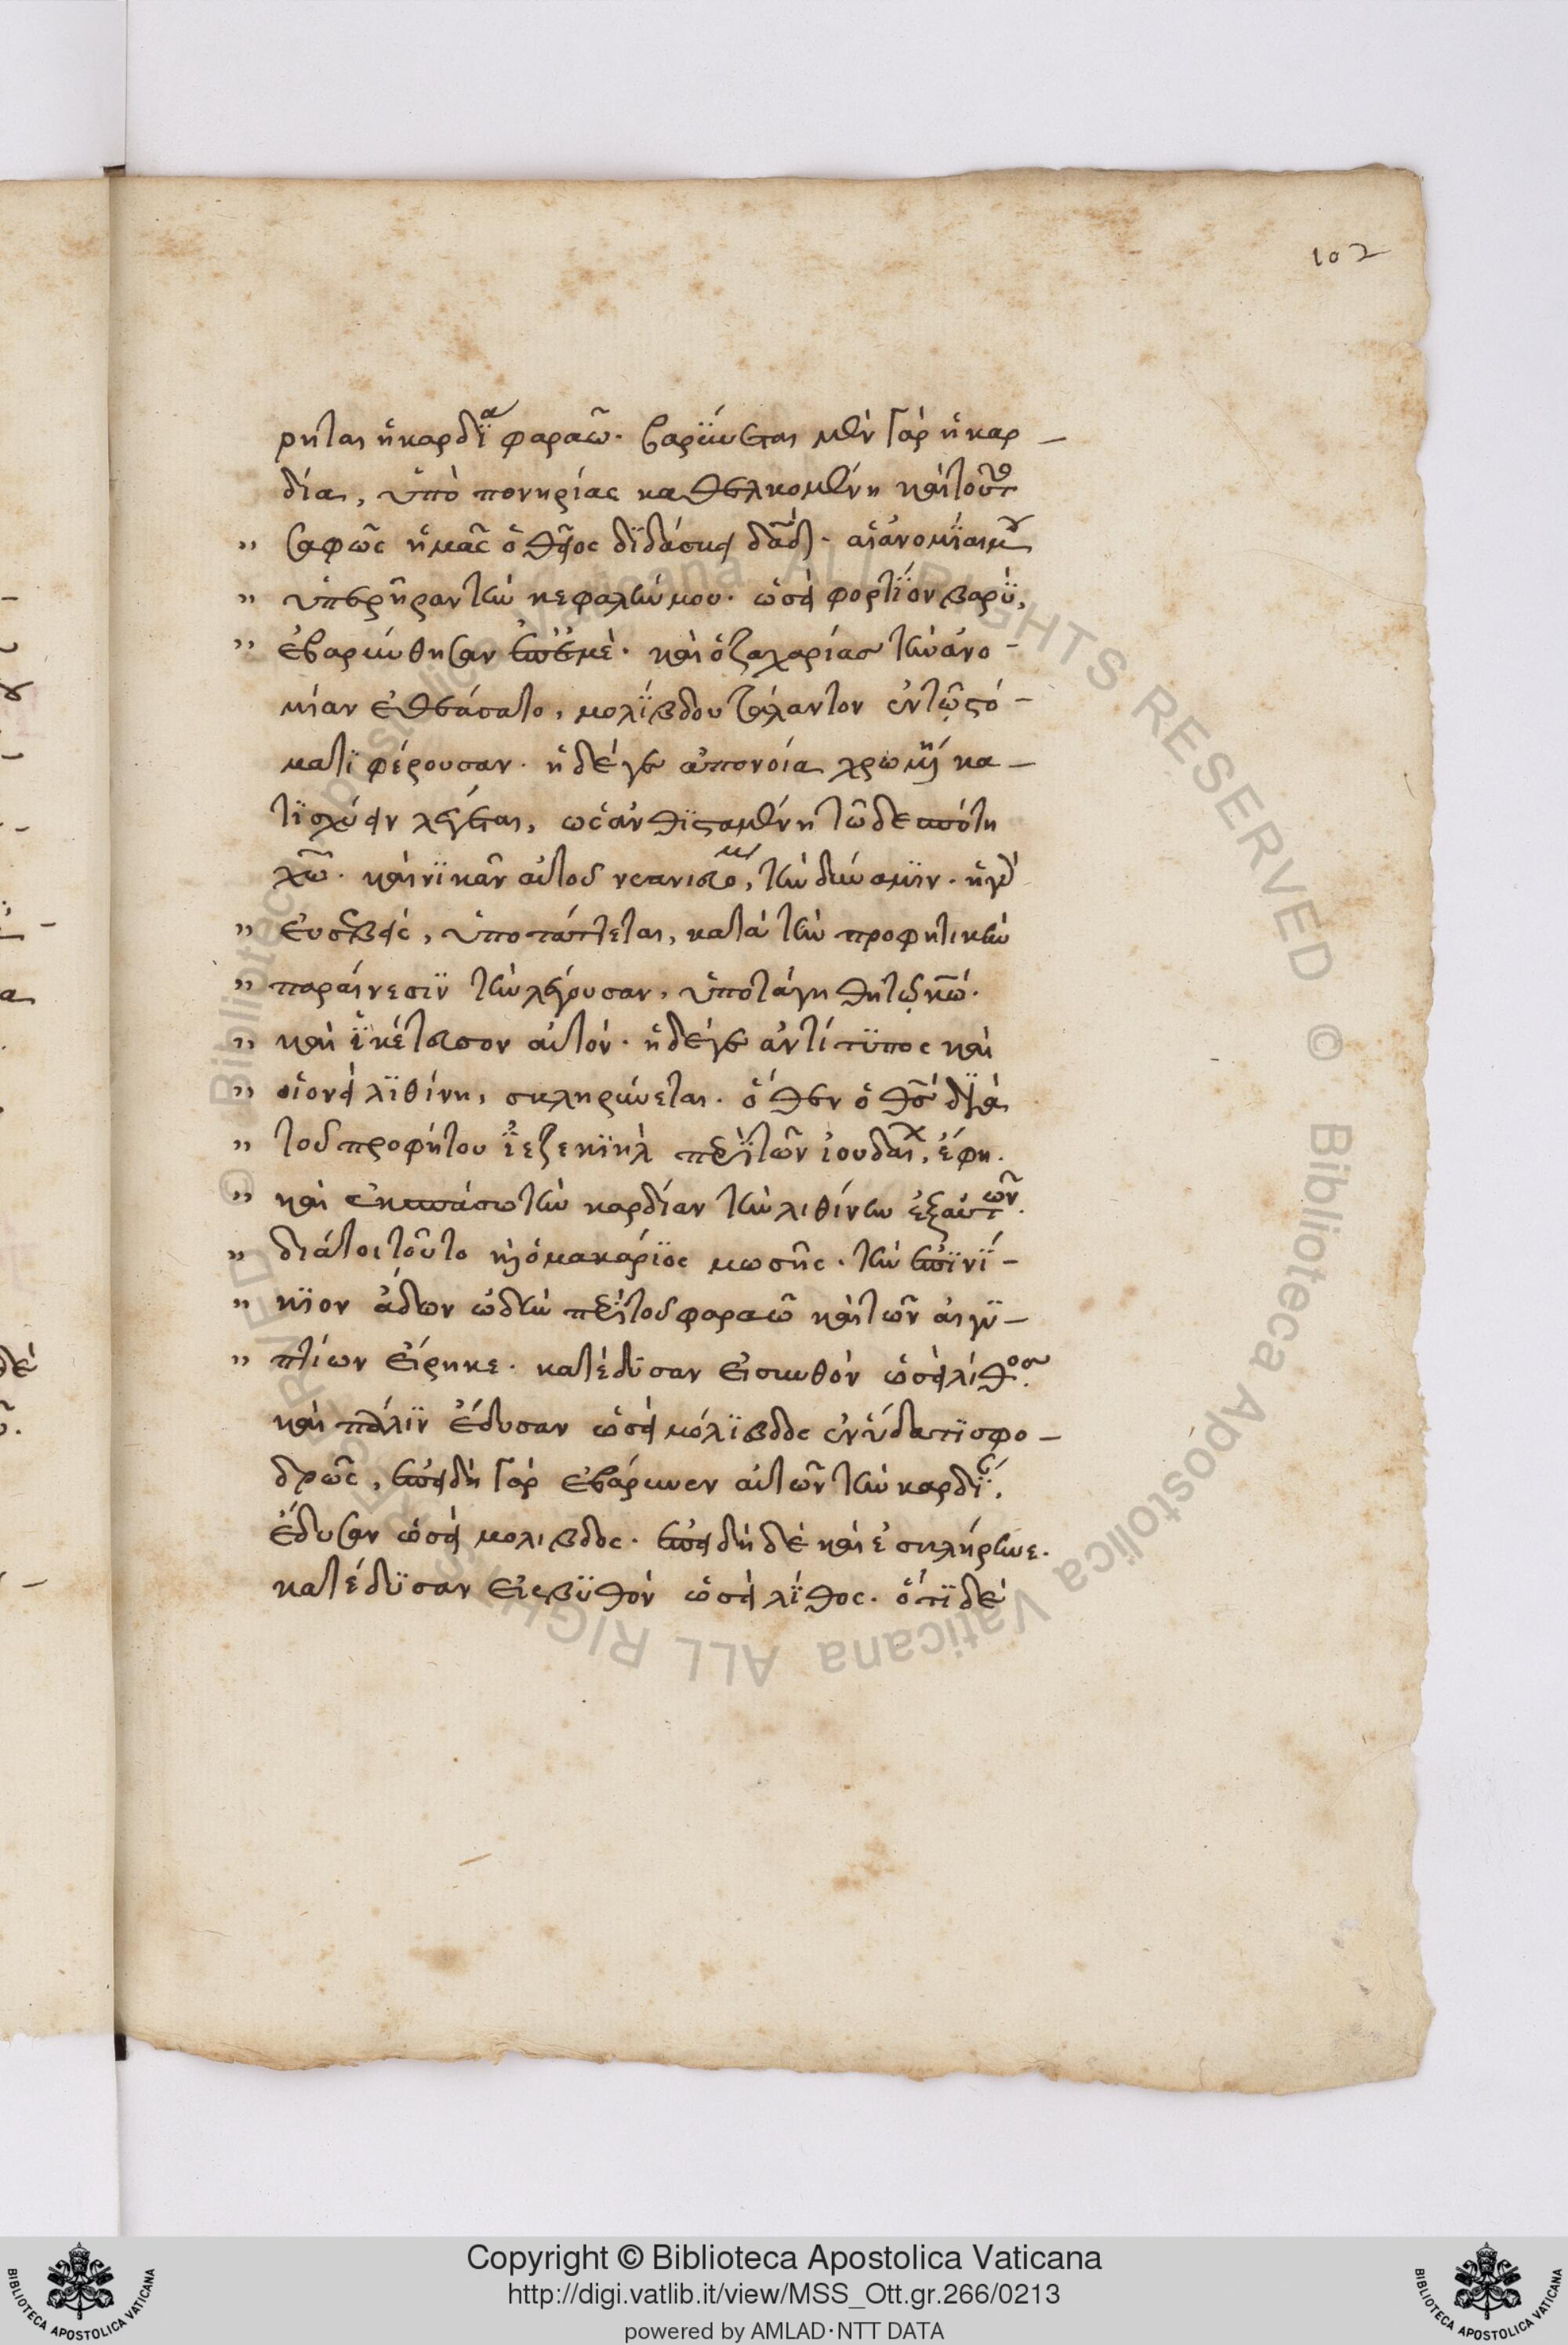 102
ρηται ἡ καρδία φαραῶ. βαρύνεται μὲν γὰρ ἡ καρ-
δία, ὑπὸ πονηρίας καθελκομένη καὶ τοῦτο
" σαφῶς ἡμᾶς ὁ θεῖος διδάσκει δαδ. αἱ ἀνομίαι μου
" ὑπερῆραν τὴν κεφαλήν μου. ὡσεὶ φορτίον βαρὺ,
" ἐβαρύνθησαν ἐπ' ἐμέ. καὶ ὁ ζαχαρίας τὴν ἀνο-
μίαν ἐθεάσατο, μολίβδου τάλαντον ἐν τῷ στό-
ματι φέρουσαν. ἡ δέ γε ἀπονοία χρωμένη κα-
τισχύειν λέγεται, ὡς ἀνθισταμένη τῶ δεσπότη
χω. καὶ νικᾶν αὐτοῦ νεανιευομ, τὴν δύναμιν. ἡ γὰρ
" εὐσεβεῖς, ὑποτάττεται, κατὰ τὴν προφητικὴν
" παραίνεσιν τὴν λέγουσαν, ὑποτάγηθι τῷ κω.
" καὶ ἱκέτευσον αὐτόν. ἡ δέ γε ἀντίτυπος καὶ
" οἱονεὶ λιθίνη, σκληρύνεται. ὅθεν ὁ θς διὰ
" τοῦ προφήτου ἰεζεκιὴλ περὶ τῶν ἰουδαί, ἔφη.
" καὶ ἐκσπάσω τὴν καρδίαν τὴν λιθίνην ἐξ αὐτῶν.
" διάτοι τοῦτο καὶ ὁ μακάριος μωσῆς. τὴν ἐπινί-
" κιον ἄδων ὠδὴν περὶ τοῦ φαραῶ καὶ τῶν αἰγυ-
" πτίων εἴρηκε. κατέδυσαν εἰς βυθὸν ὡσεὶ λίθος.
καὶ πάλιν ἔδυσαν ὡσεὶ μόλιβδος ἐν ὕδατι σφο-
δρῶς, ἐπειδὴ γὰρ ἐβάρυνεν αὐτῶν τὴν καρδί,
ἔδυσαν ὡσεὶ μολιβδος. ἐπειδὴ δὲ καὶ ἐσκλήρυνε.
κατέδυσαν εἰς βυθὸν ὡσεὶ λίθος. ὅτι δὲ
Copyright © Biblioteca Apostolica Vaticana
http://digi.vatlib.it/view/MSS_Ott.gr.266/0213
powered by AMLAD·NTT DATA